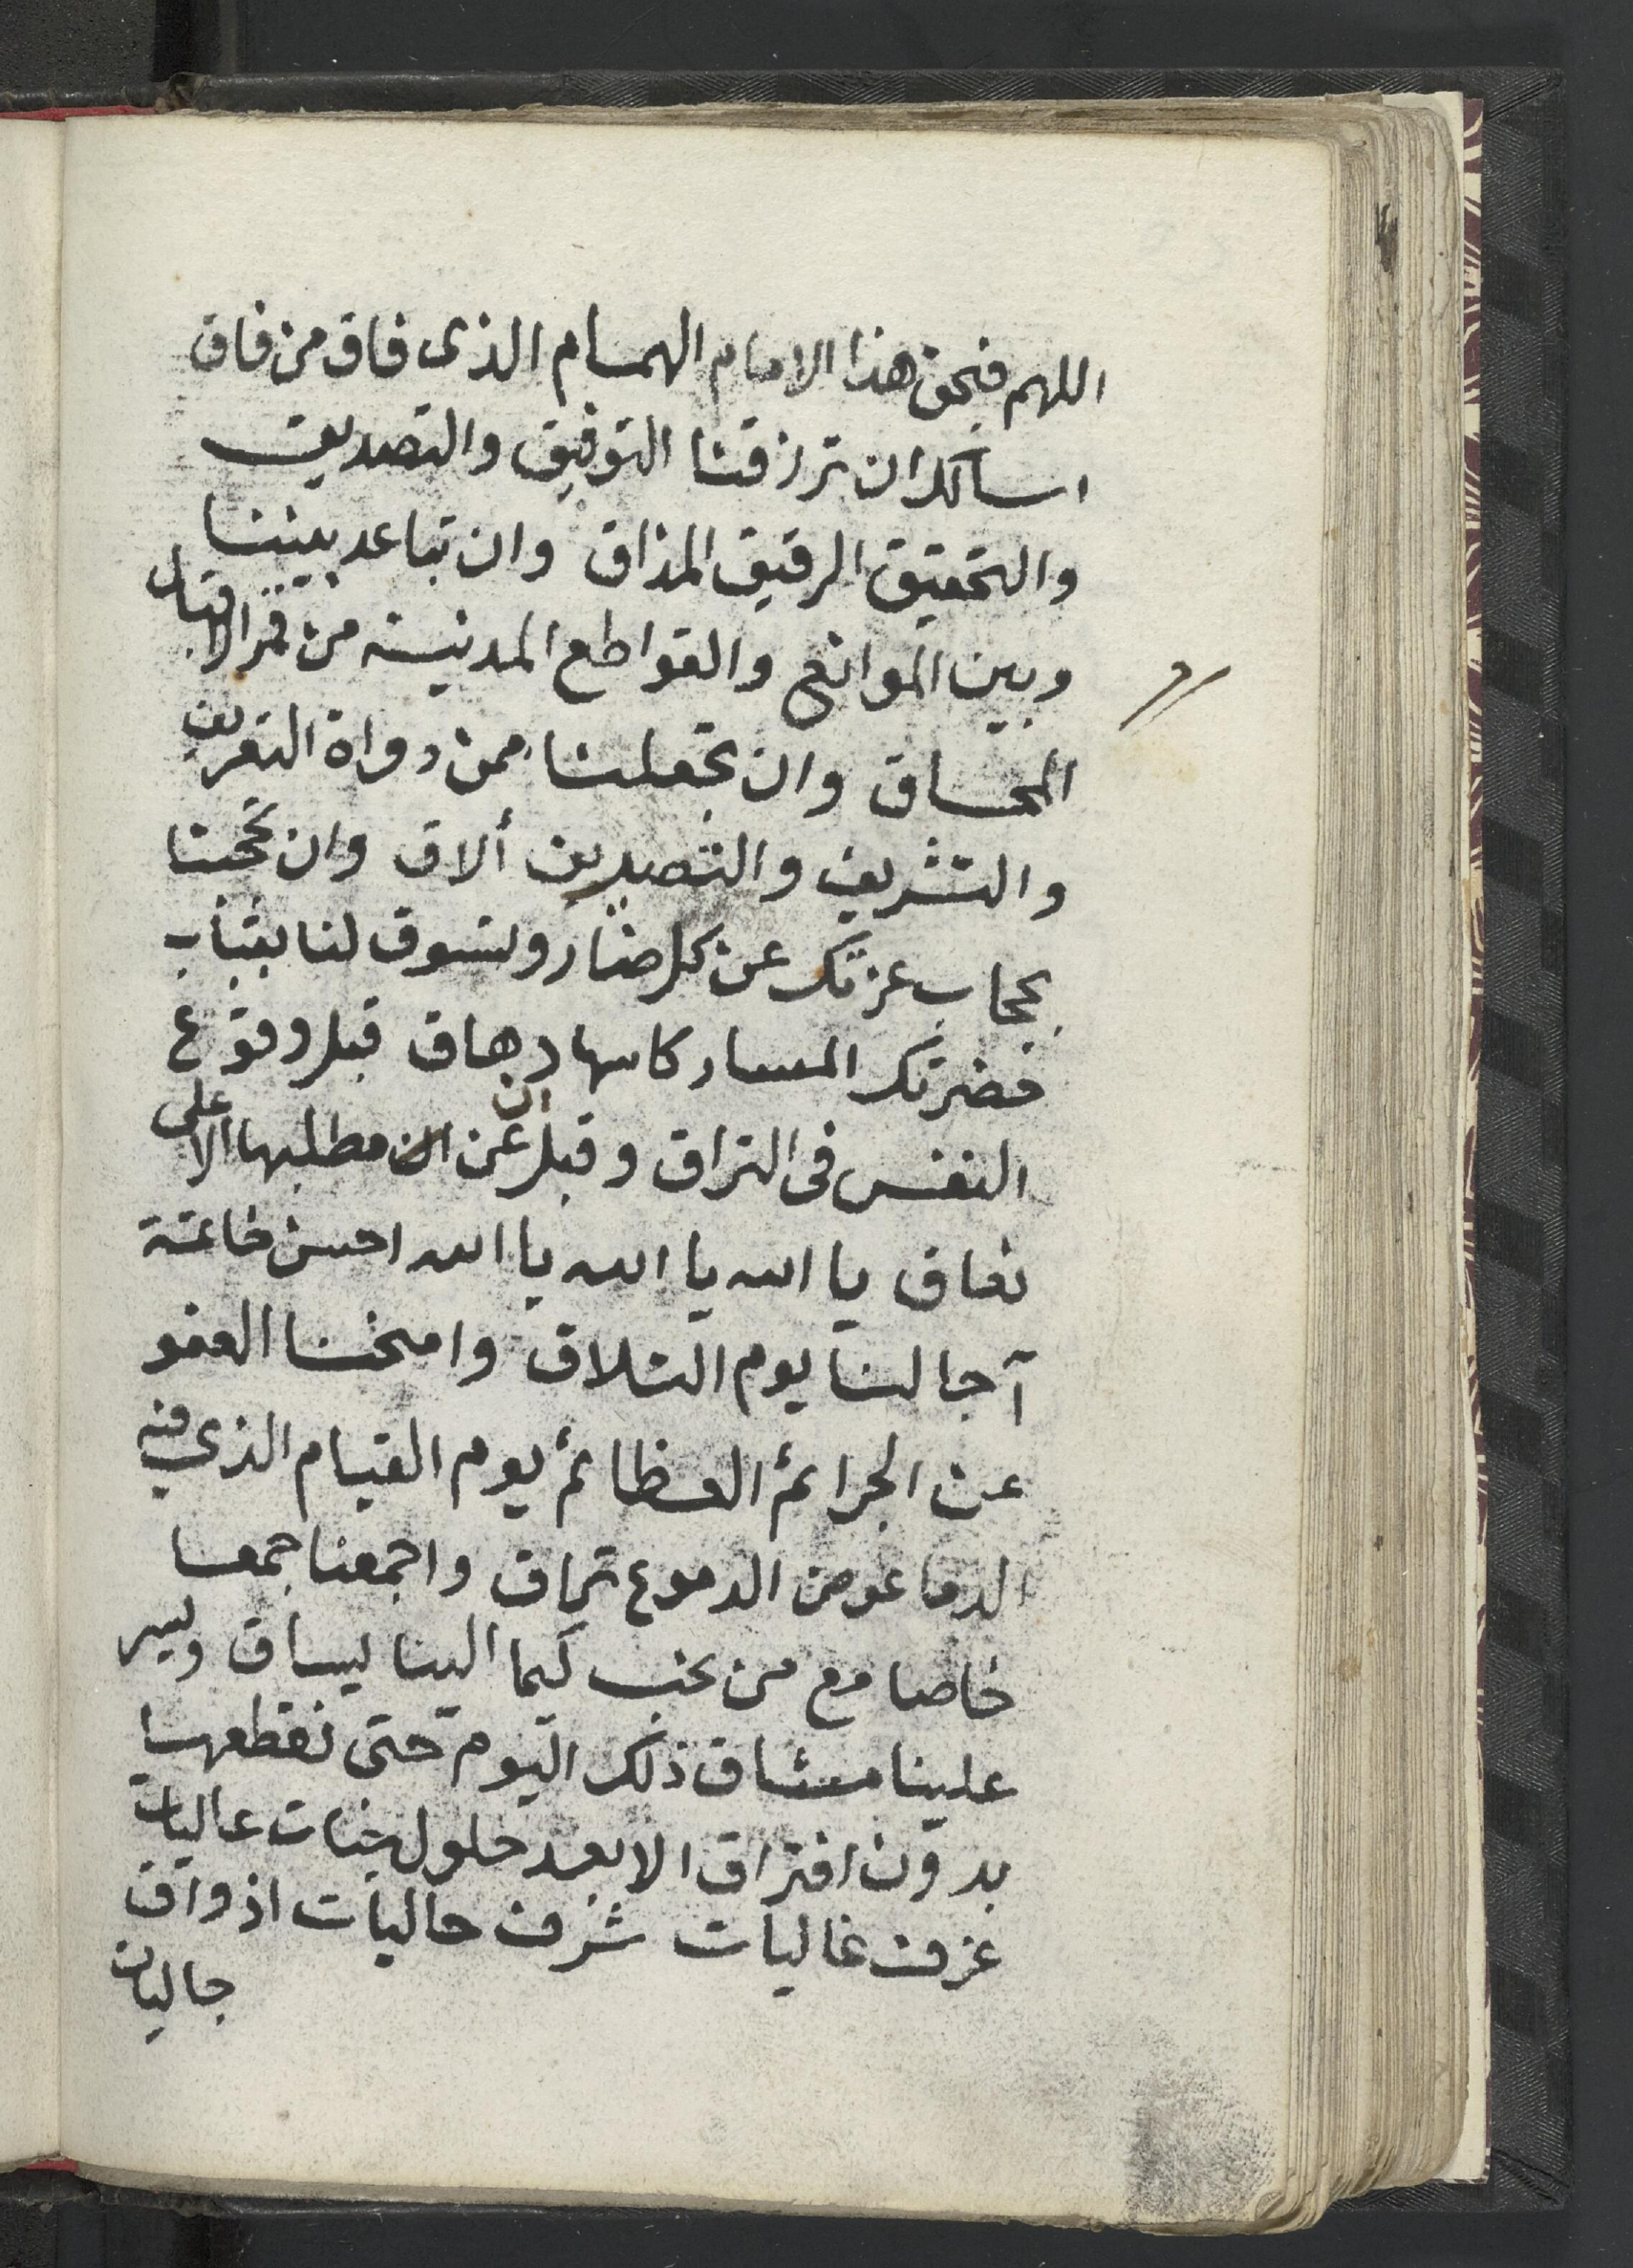 اللهم فبحق هذا الامام الهمام الذى فاق من فاق
اسالك ان ترزقنا التوفيق والتصديق
والتحقيق الرقيق المذاق وان تباعد بيننا
وبين الموانع والقواطع المدنية من قمر الاقبال
المحاق وان تجعلنا ممن دواة التعريف
والتشريف والتصديق ألاق وان تحجبنا
بحجاب عزتك عن كل ضار وتسوق لنا بقباب
خضرتك المسار كاسها دهاق قبل وقوع
النفس فى التراق وقبل ان عن مطلبها الاعلى
نعاق يا الله يا الله يا الله احسن خاتمة
آجالنا يوم التلاق وامنحنا العفو
عن الجرائم العظائم يوم القيام الذي فيه
الدما عوض الدموع تراق واجمعنا جمعا
خاصا مع من نحب كيما الينا يساق ويسر
علينا مشاق ذلك اليوم حتى نقطعها
بدون افتراق الا بعد حلول جنات عاليات
غرف غاليات شرف حاليات اذواق
جاليات